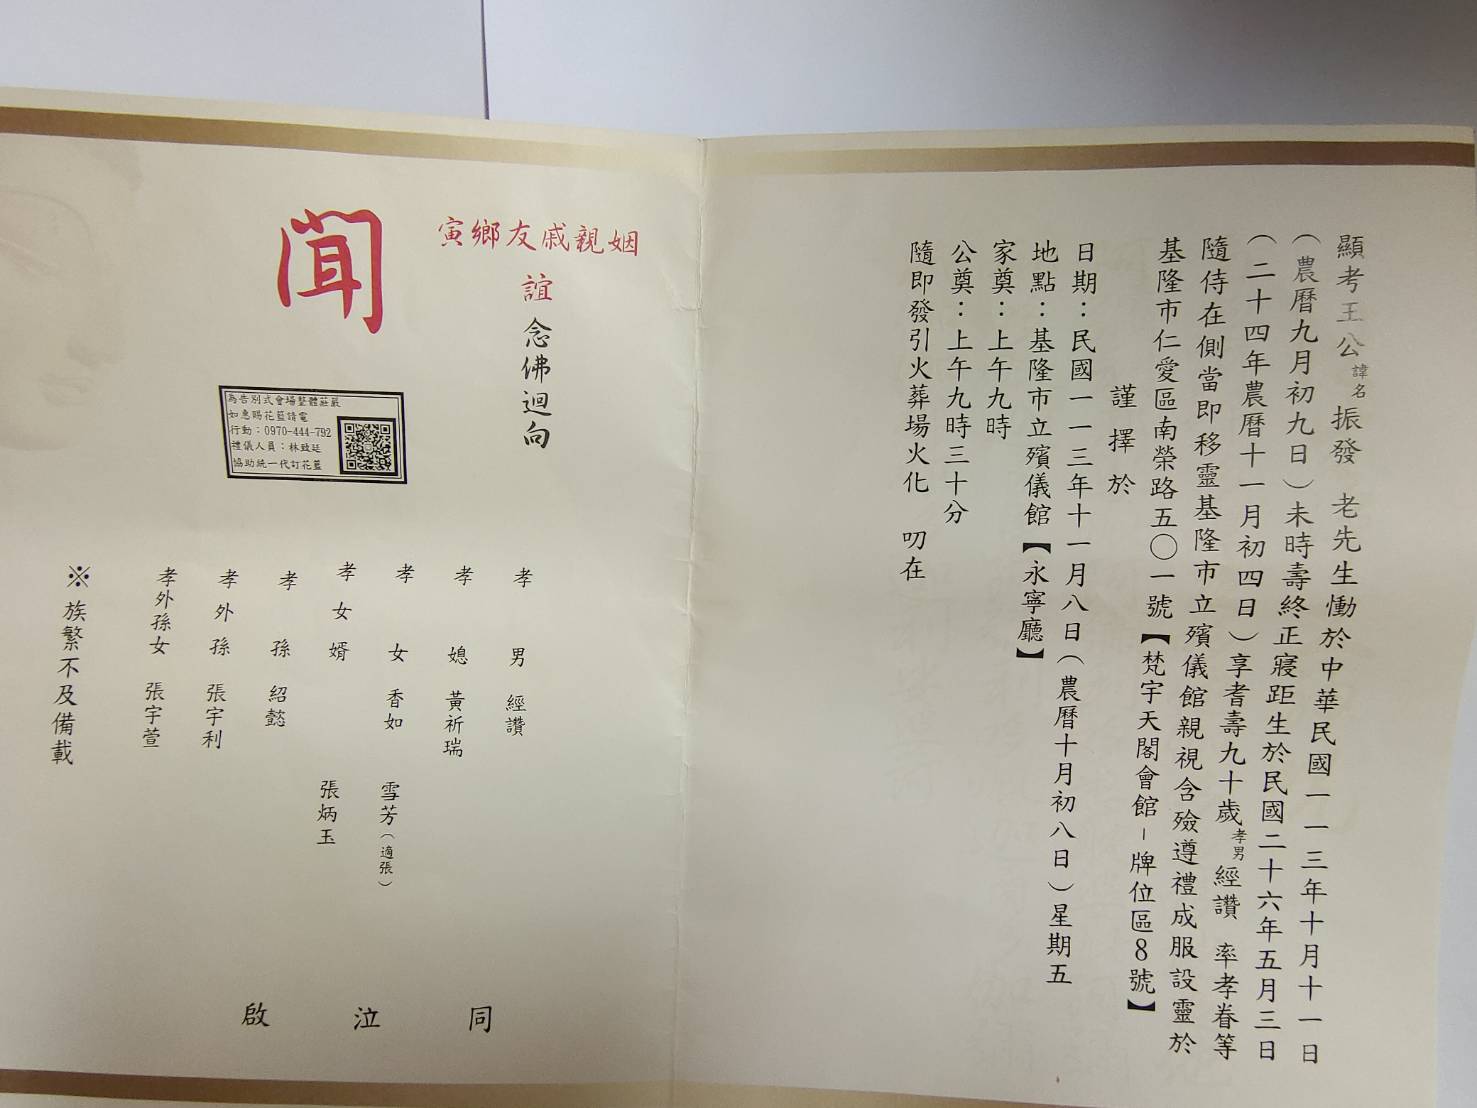 顯考王公諱名振發 老先生慟於中華民國一一三年十月十一日
（農曆九月初九日）未時壽終正寢距生於民國二十六年五月三日
（二十四年農曆十一月初四日）享耆壽九十歲孝男經讚 率孝眷等
隨侍在側當即移靈基隆市立殯儀館親視含殮遵禮成服設靈於
基隆市仁愛區南榮路五〇一號【梵宇天閣會館－牌位區8號】
謹擇於
日期：民國一一三年十一月八日（農曆十月初八日）星期五
地點：基隆市立殯儀館【永寧廳】
家奠：上午九時
公奠：上午九時三十分
隨即發引火葬場火化 叨在
姻親戚友鄉寅
誼念佛迴向
聞
為告別式會場整體莊嚴
如惠賜花籃請電
行動：0970-444-792
禮儀人員：林致廷
協助統一代訂花籃
孝男 經讚
孝媳 黃祈瑞
孝女 香如 雪芳（適張）
孝女婿 張炳玉
孝孫 紹懿
孝外孫 張宇利
孝外孫女 張宇萱
※族繁不及備載
同泣啟